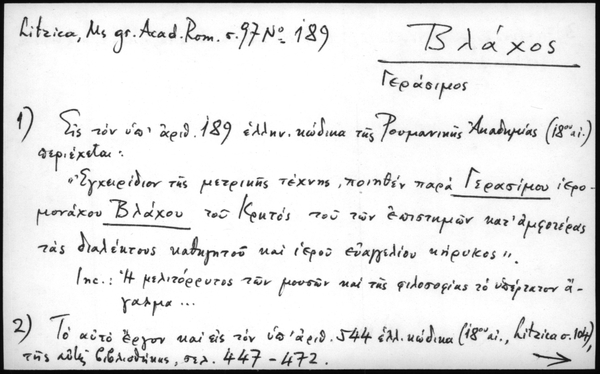 Litzica, Ms gr. Acad. Rom. σ. 97 Nο 189
Βλάχος
Γεράσιμος
1) Εἰς τὸν ὑπ' ἀριθ. 189 ἑλλην. κώδικα τῆς Ρουμανικῆς Ἀκαδημίας (18ου αἰ.)
περιέχεται:
"Ἐγχειρίδιον τῆς μετρικῆς τέχνης, ποιηθέν παρά Γερασίμου ἱερο-
μονάχου Βλάχου τοῦ Κρητός τοῦ τῶν ἐπιστημῶν κατ' ἀμφοτέρας
τὰς διαλέκτους καθηγητοῦ καὶ ἱεροῦ εὐαγγελίου κήρυκος".
Inc.: Ἡ μελιτόρρυτος τῶν μουσῶν καὶ τῆς φιλοσοφίας τὸ ὑπέρτατον ἄ-
γαλμα ...
2) Τὸ αὐτὸ ἔργον καὶ εἰς τὸν ὑπ' ἀριθ. 544 ἑλλ. κώδικα (18ου αἰ., Litzica σ. 104),
τῆς αὐτῆς βιβλιοθήκης, σελ. 447-472.